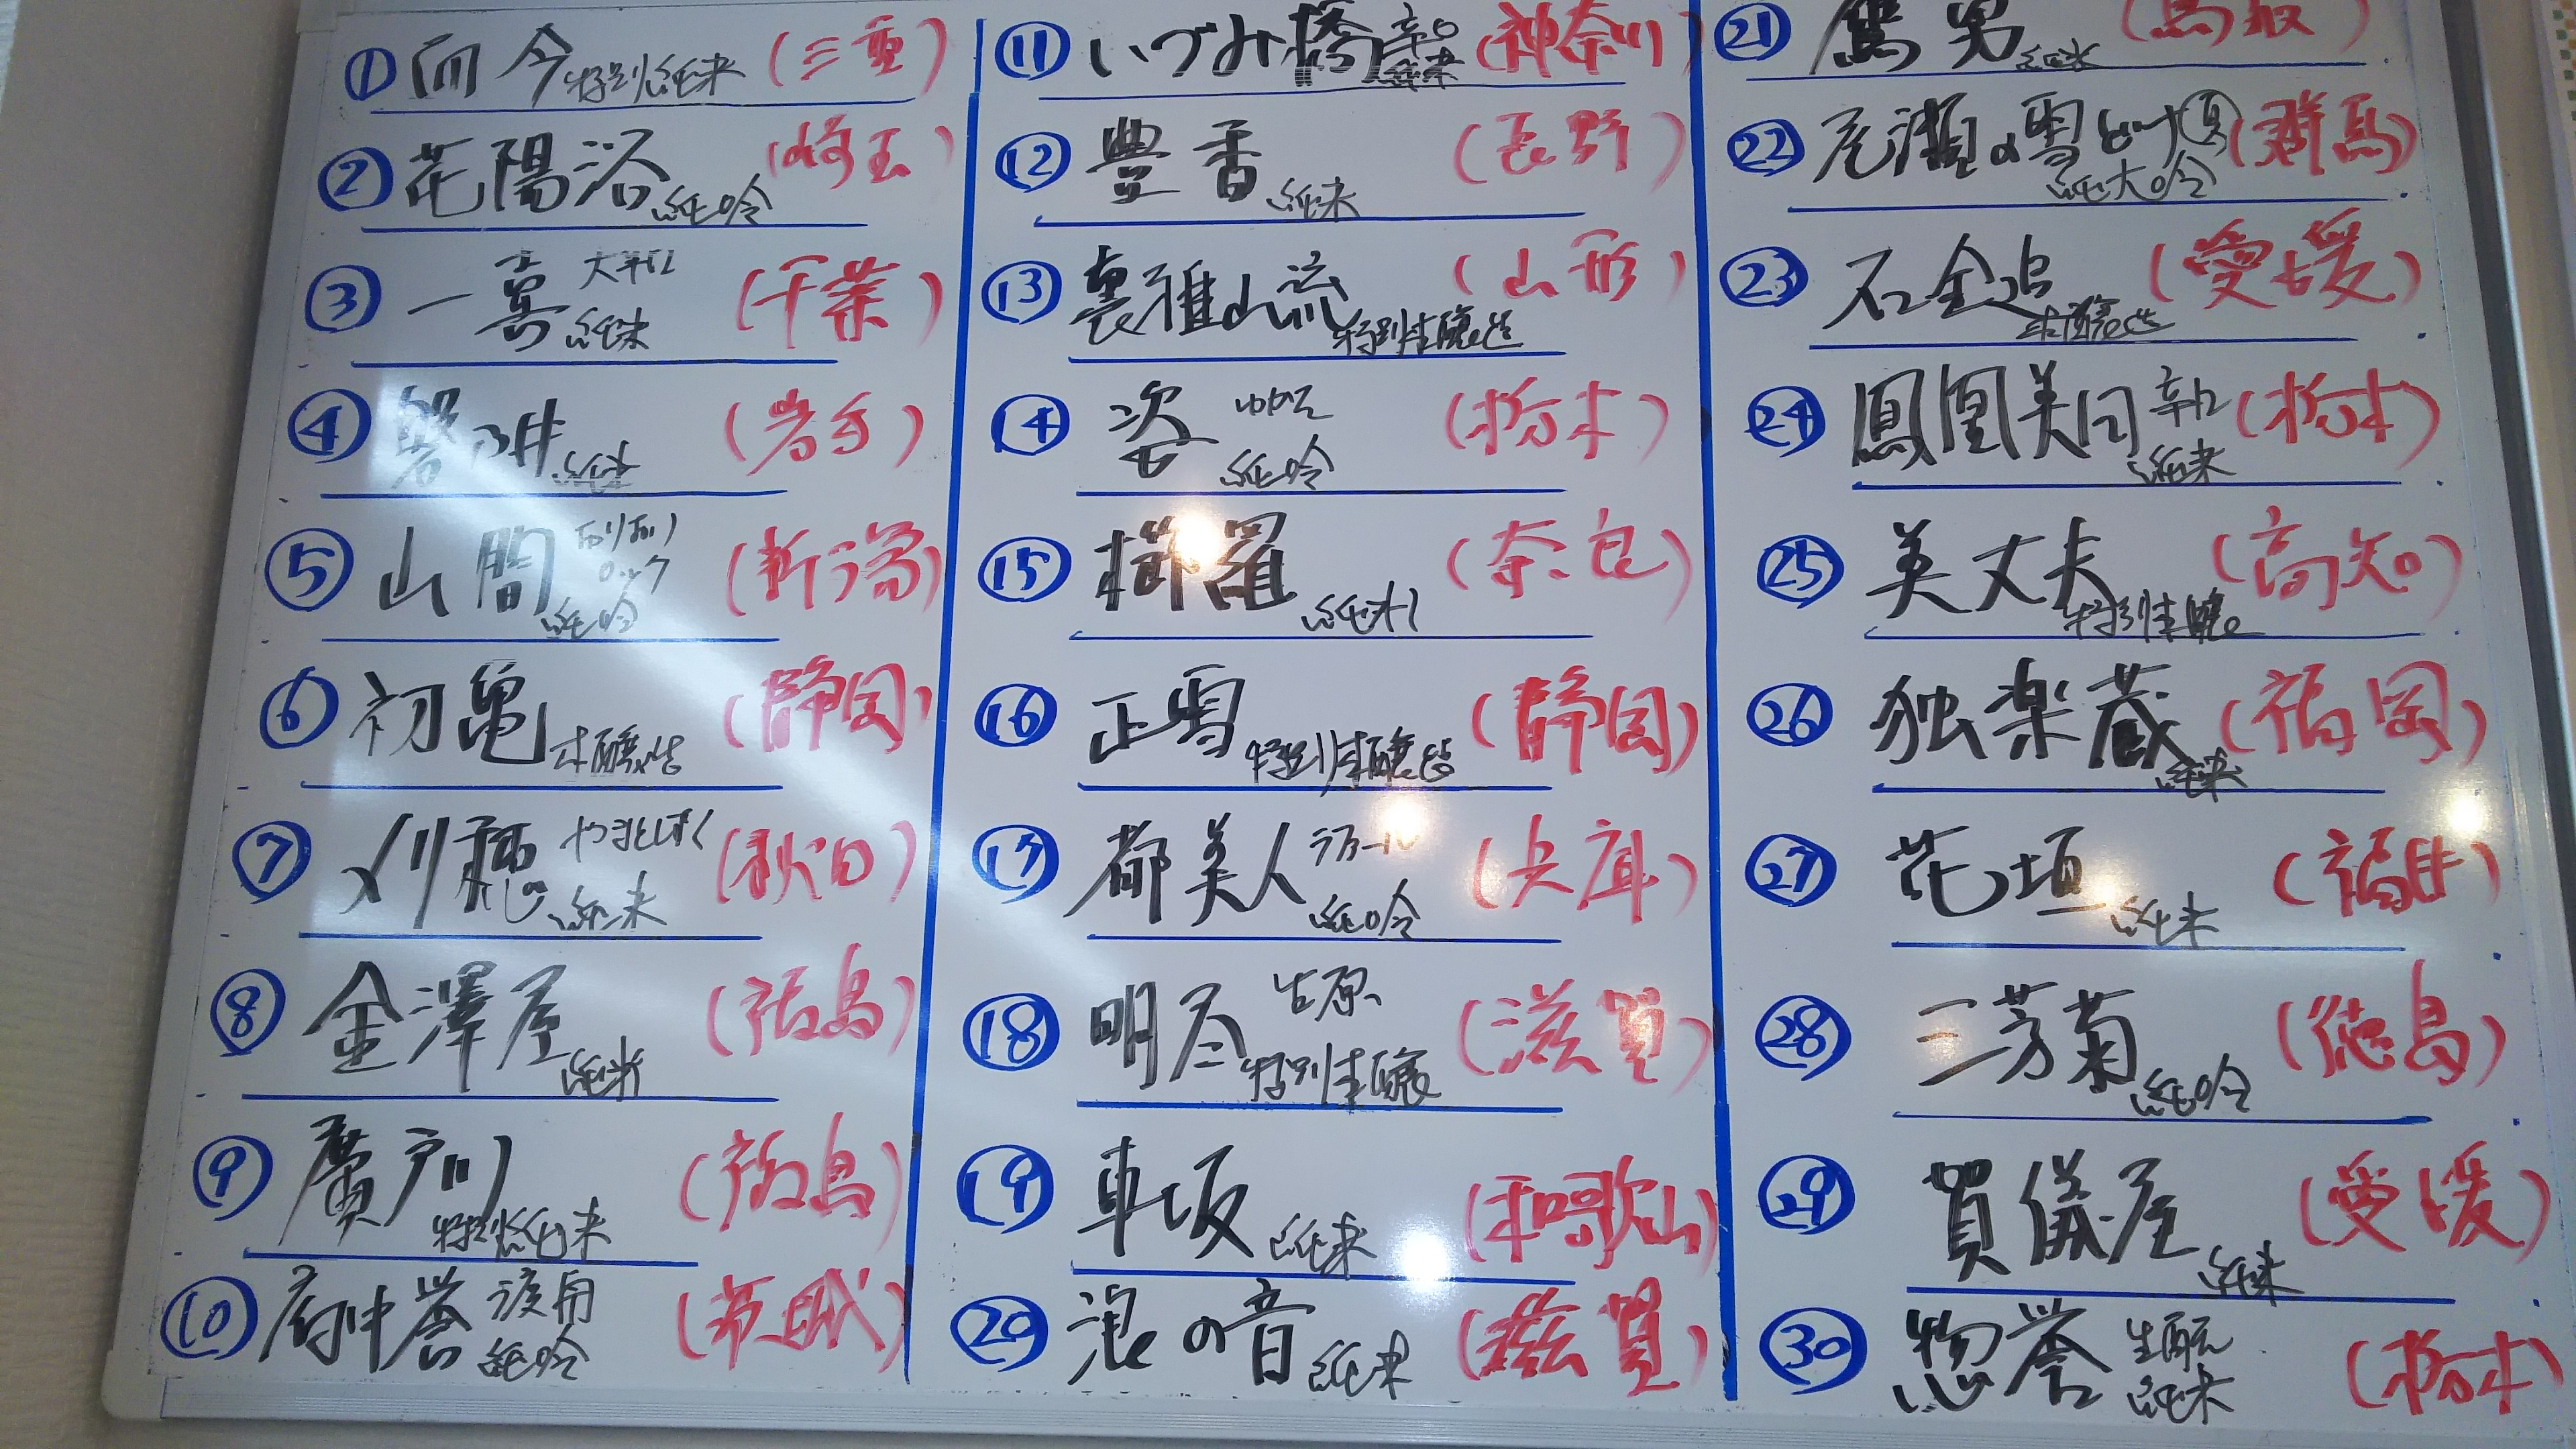 ① 而今 特別純米 (三重)
② 花陽浴 純吟 (崎玉)
③ 一喜 大辛口 純米 (千葉)
④ 磐乃井 純米 (岩手)
⑤ 山間 純吟 (新潟)
⑥ 初亀 本醸造 (静岡)
⑦ 刈穂 やまとしずく 純米 (秋田)
⑧ 金澤屋 純米 (福島)
⑨ 廣戸川 特別純米 (福島)
⑩ 府中誉 渡舟 純吟 (茨城)
⑪ いづみ橋 辛口 純米 (神奈川)
⑫ 豊香 純米 (長野)
⑬ 裏雅山流 特別本醸造 (山形)
⑭ 姿 純吟 (栃木)
⑮ 櫛羅 純米 (奈良)
⑯ 正雪 特別本醸造 (静岡)
⑰ 都美人 純吟 (兵庫)
⑱ 明尽 生原 特別本醸 (滋賀)
⑲ 車坂 純米 (和歌山)
⑳ 浪の音 純米 (滋賀)
㉑ 篤男 純米 (鳥取)
㉒ 尾瀬の雪どけ 夏 純大吟 (群馬)
㉓ 石金追 本醸造 (愛媛)
㉔ 鳳凰美田 辛口 純米 (栃木)
㉕ 美丈夫 特別本醸 (高知)
㉖ 独楽蔵 純米 (福岡)
㉗ 花垣 純米 (福井)
㉘ 三芳菊 純吟 (徳島)
㉙ 賀儀屋 純米 (愛媛)
㉚ 惣誉 生酛 純米 (栃木)